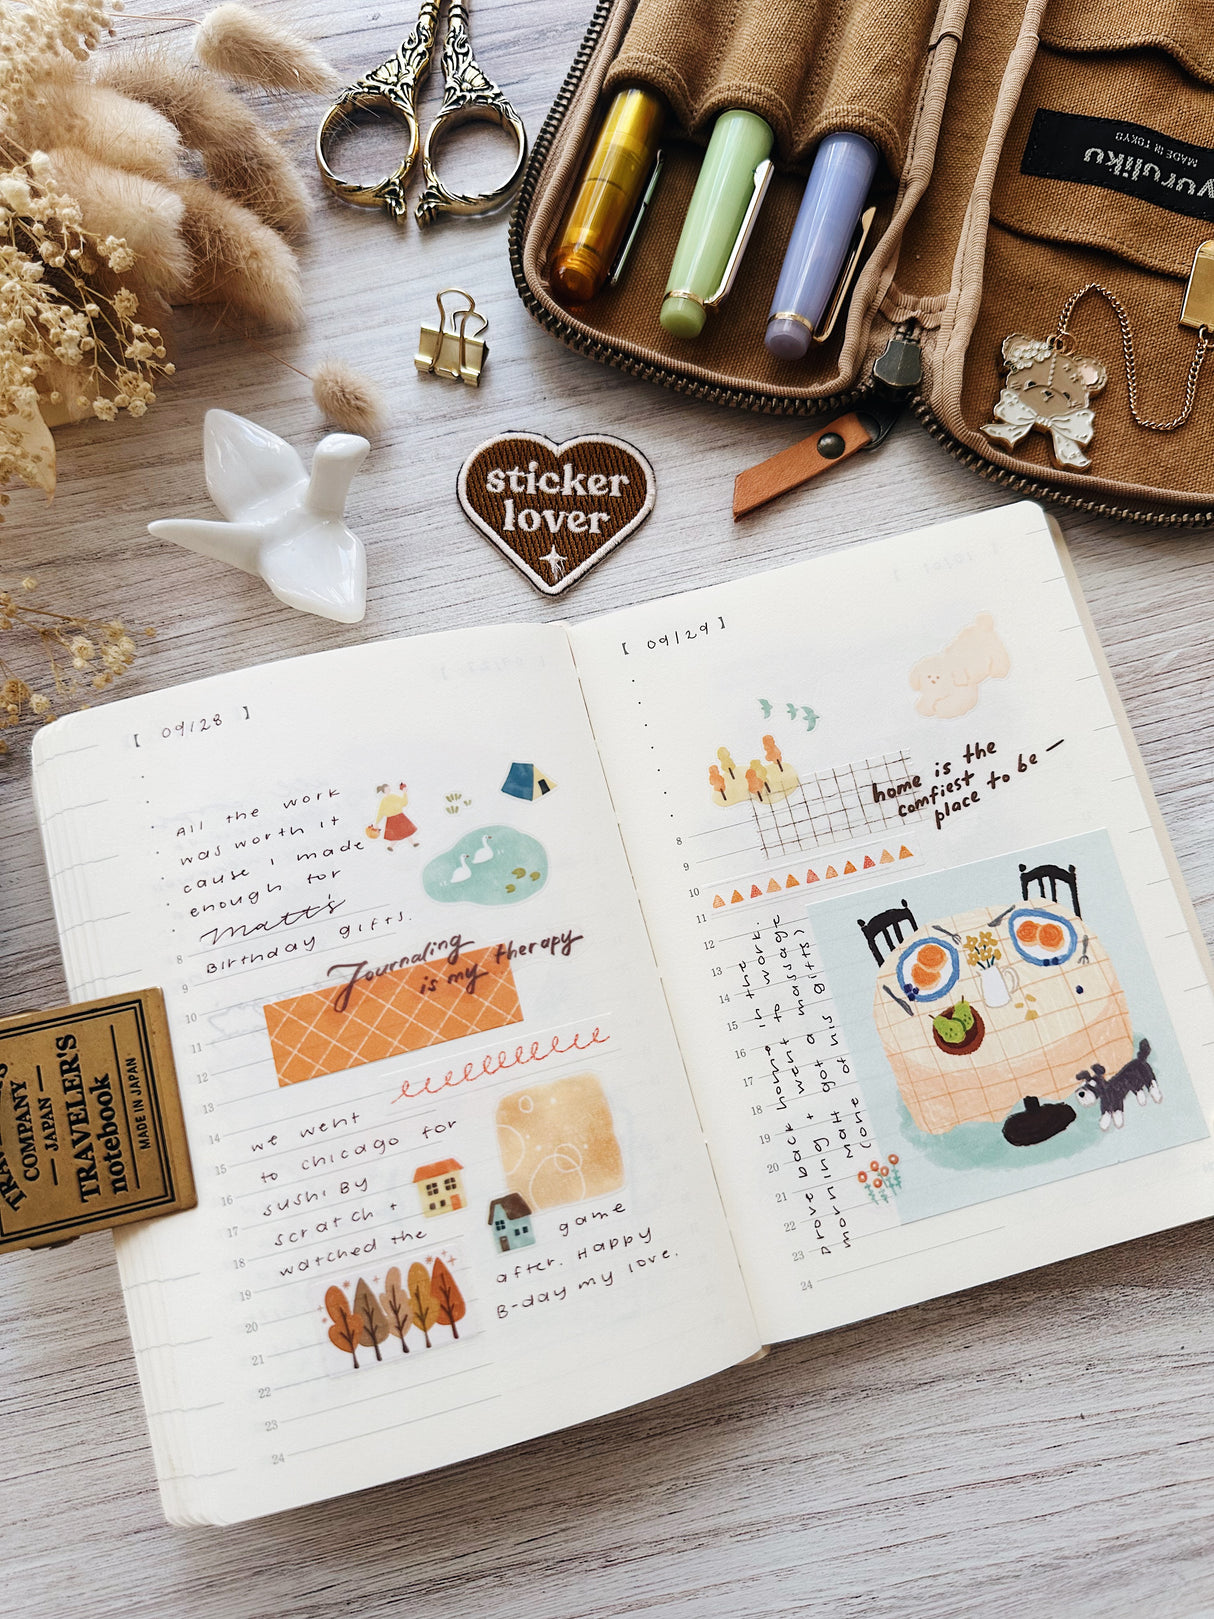 yuruliku
MADE IN TOKYO
sticker
lover
[ 09/28 ]
All the work
was worth it
cause I made
enough for
Matt's
Birthday gifts.
Journaling
is my therapy
8
9
10
11
12
13
14
15
16
17
18
19
20
21
22
23
24
we went
to chicago for
sushi By
scratch +
watched the
game
after. Happy
B-day my love.
COMPANY
JAPAN
TRAVELER'S
notebook
MADE IN JAPAN
[ 09/29 ]
home is the
comfiest
place to be
8
9
10
11
12
13
14
15
16
17
18
19
20
21
22
23
24
Drove back home in the
morning + went to work.
Matt got a massage
(one of his gifts)